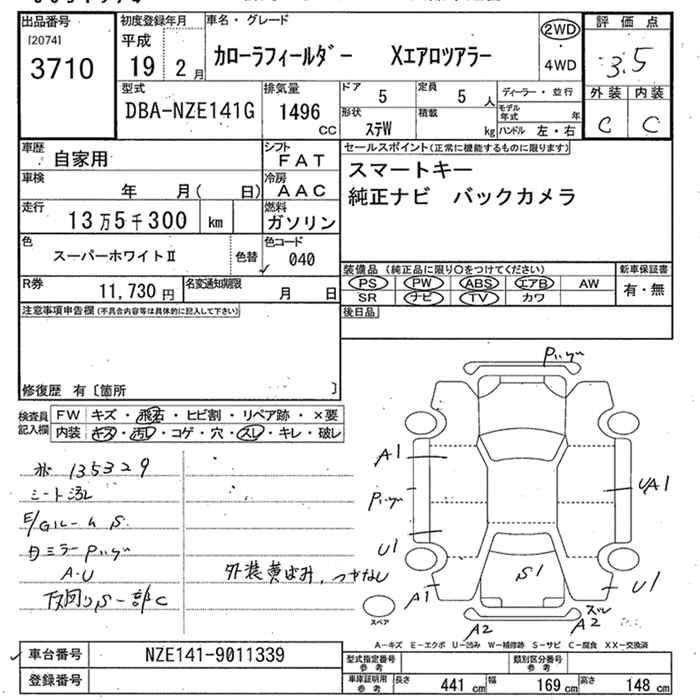 出品番号 初度登録年月 車名・グレード 評価点
[2074] 平成
3710 19 2月 カローラフィールダー Xエアロツアラー 2WD・4WD 3.5
型式 排気量 ドア 定員 ディーラー・並行 外装 内装
DBA-NZE141G 1496 CC 5 5人 モデル年式 年 C C
形状 積載
ステW kg ハンドル 左・右
車歴 自家用 シフト FAT セールスポイント(正常に機能するものに限ります)
車検 年 月( 日) 冷房 AAC スマートキー
走行 13万5千300 km 燃料 ガソリン 純正ナビ バックカメラ
色 スーパーホワイトⅡ 色替 色コード 040
装備品(純正品に限り○をつけてください) 新車保証書
R券 11,730円 名変通知期限 月 日 PS PW ABS エアB AW 有・無
SR ナビ TV カワ
注意事項申告欄(不具合内容等は具体的に記入して下さい) 後日品
修復歴 有〔箇所 〕
検査員記入欄 FW キズ・飛石・ヒビ割・リペア跡・×要
内装 キズ・汚レ・コゲ・穴・スレ・キレ・破レ
135329
シート汚レ
E/Gルーム S
ミラー
A・U
下回りS一部C
外装黄ばみ,
A1
U1
A1
UA1
U1
S1
A2
A2
スペア
A-キズ E-エクボ U-凹み W-補修跡 S-サビ C-腐食 XX-交換済
車台番号 NZE141-9011339 型式指定番号 参考 類別区分番号 参考
登録番号 車庫証明用 参考 長さ 441cm 幅 169cm 高さ 148cm